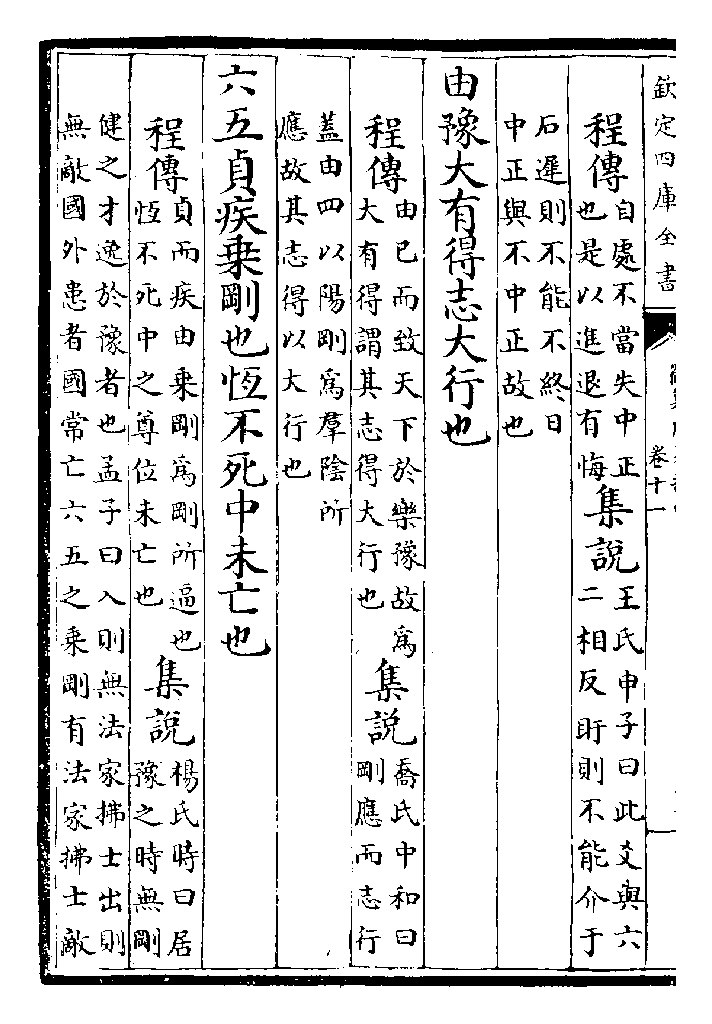 欽定四庫全書
卷十一
程傳自處不當失中正
也是以進退有悔集說王氏申子曰此爻與六
二相反盱則不能介于
石遲則不能不終日
中正與不中正故也
由豫大有得志大行也
程傳由已而致天下於樂豫故為
大有得謂其志得大行也集說喬氏中和曰
剛應而志行
蓋由四以陽剛為羣陰所
應故其志得以大行也
六五貞疾乗剛也恆不死中未亡也
程傳貞而疾由乗剛為剛所逼也
恆不死中之尊位未亡也集說楊氏時曰居
豫之時無剛
健之才逸於豫者也孟子曰入則無法家拂士出則
無敵國外患者國常亡六五之乗剛有法家拂士敵